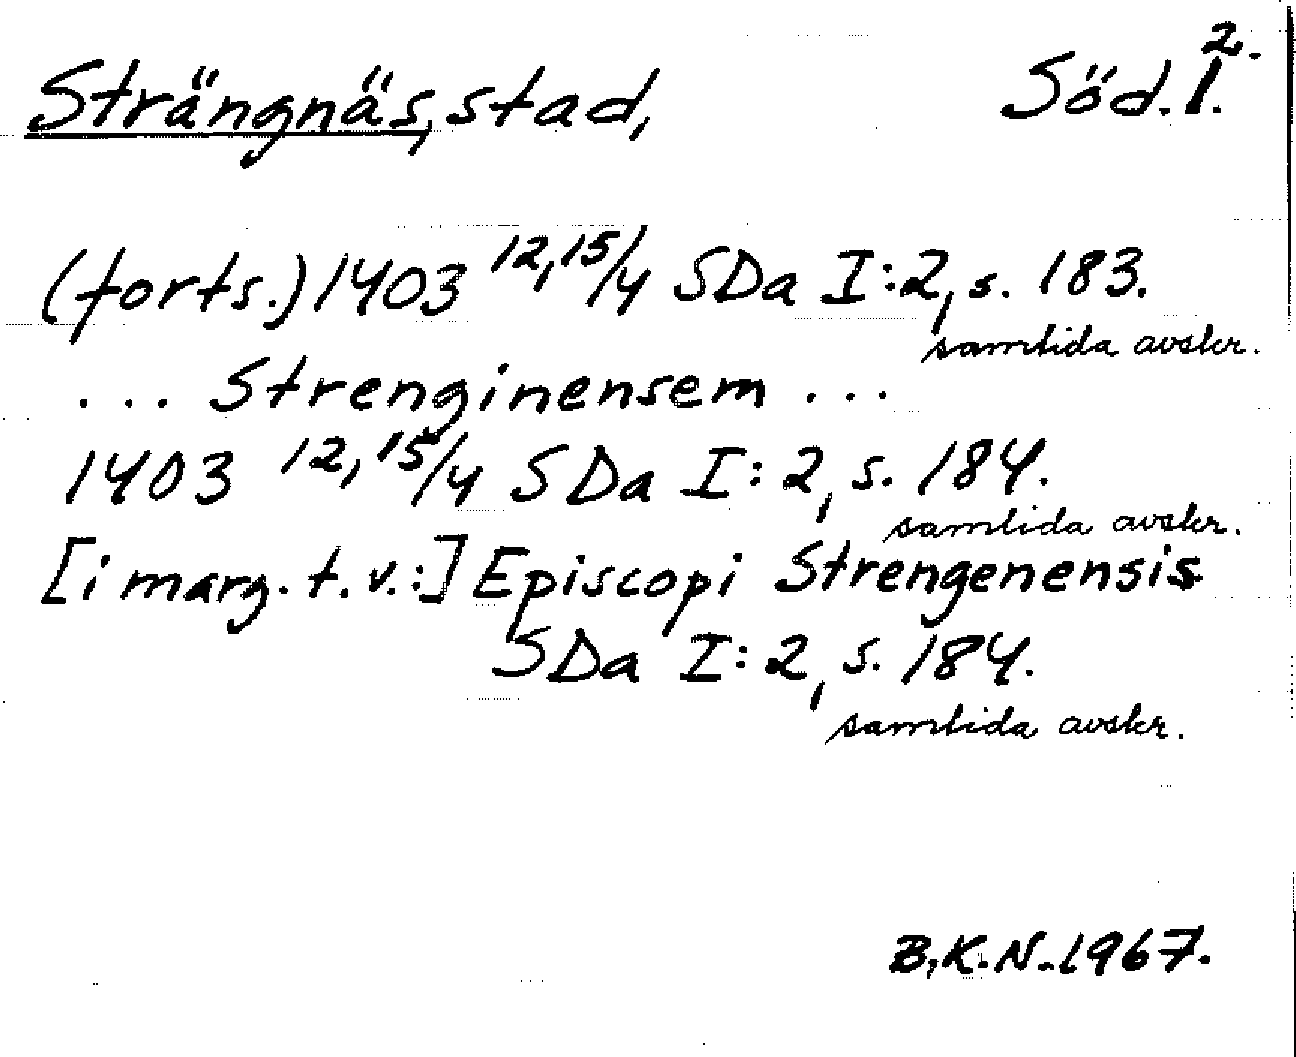 2.
Strängnäs, stad, Söd. 1.
(forts.) 1403 12,15/4 SDa I:2, s. 183.
samtida avskr.
... Strenginensem ...
1403 12,15/4 SDa I:2, s. 184.
samtida avskr.
[i marg. t. v.:] Episcopi Strengenensis
SDa I:2, s. 184.
samtida avskr.
B.K.N. 1967.